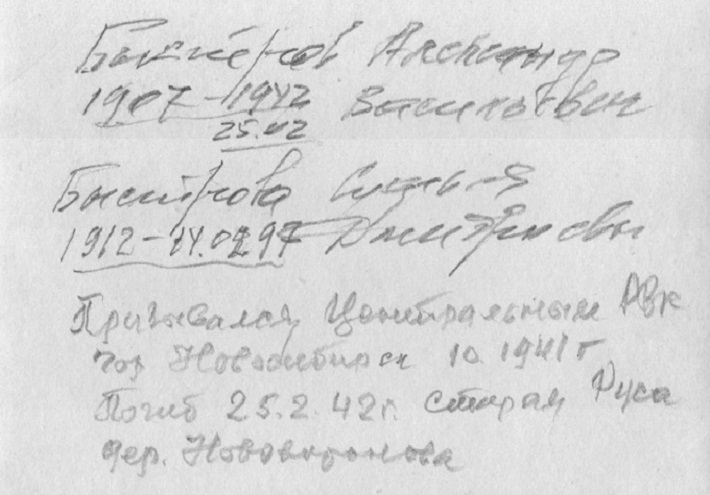 Быстров Александр
1907-1942 Васильевич
25.02
Быстрова
1912-14.02.97 Дмитриевы
Призывался Центральным РВК
гор Новосибирск 10.1941 г
Погиб 25.2.42 г. Старая Руса
дер. Нововоронова